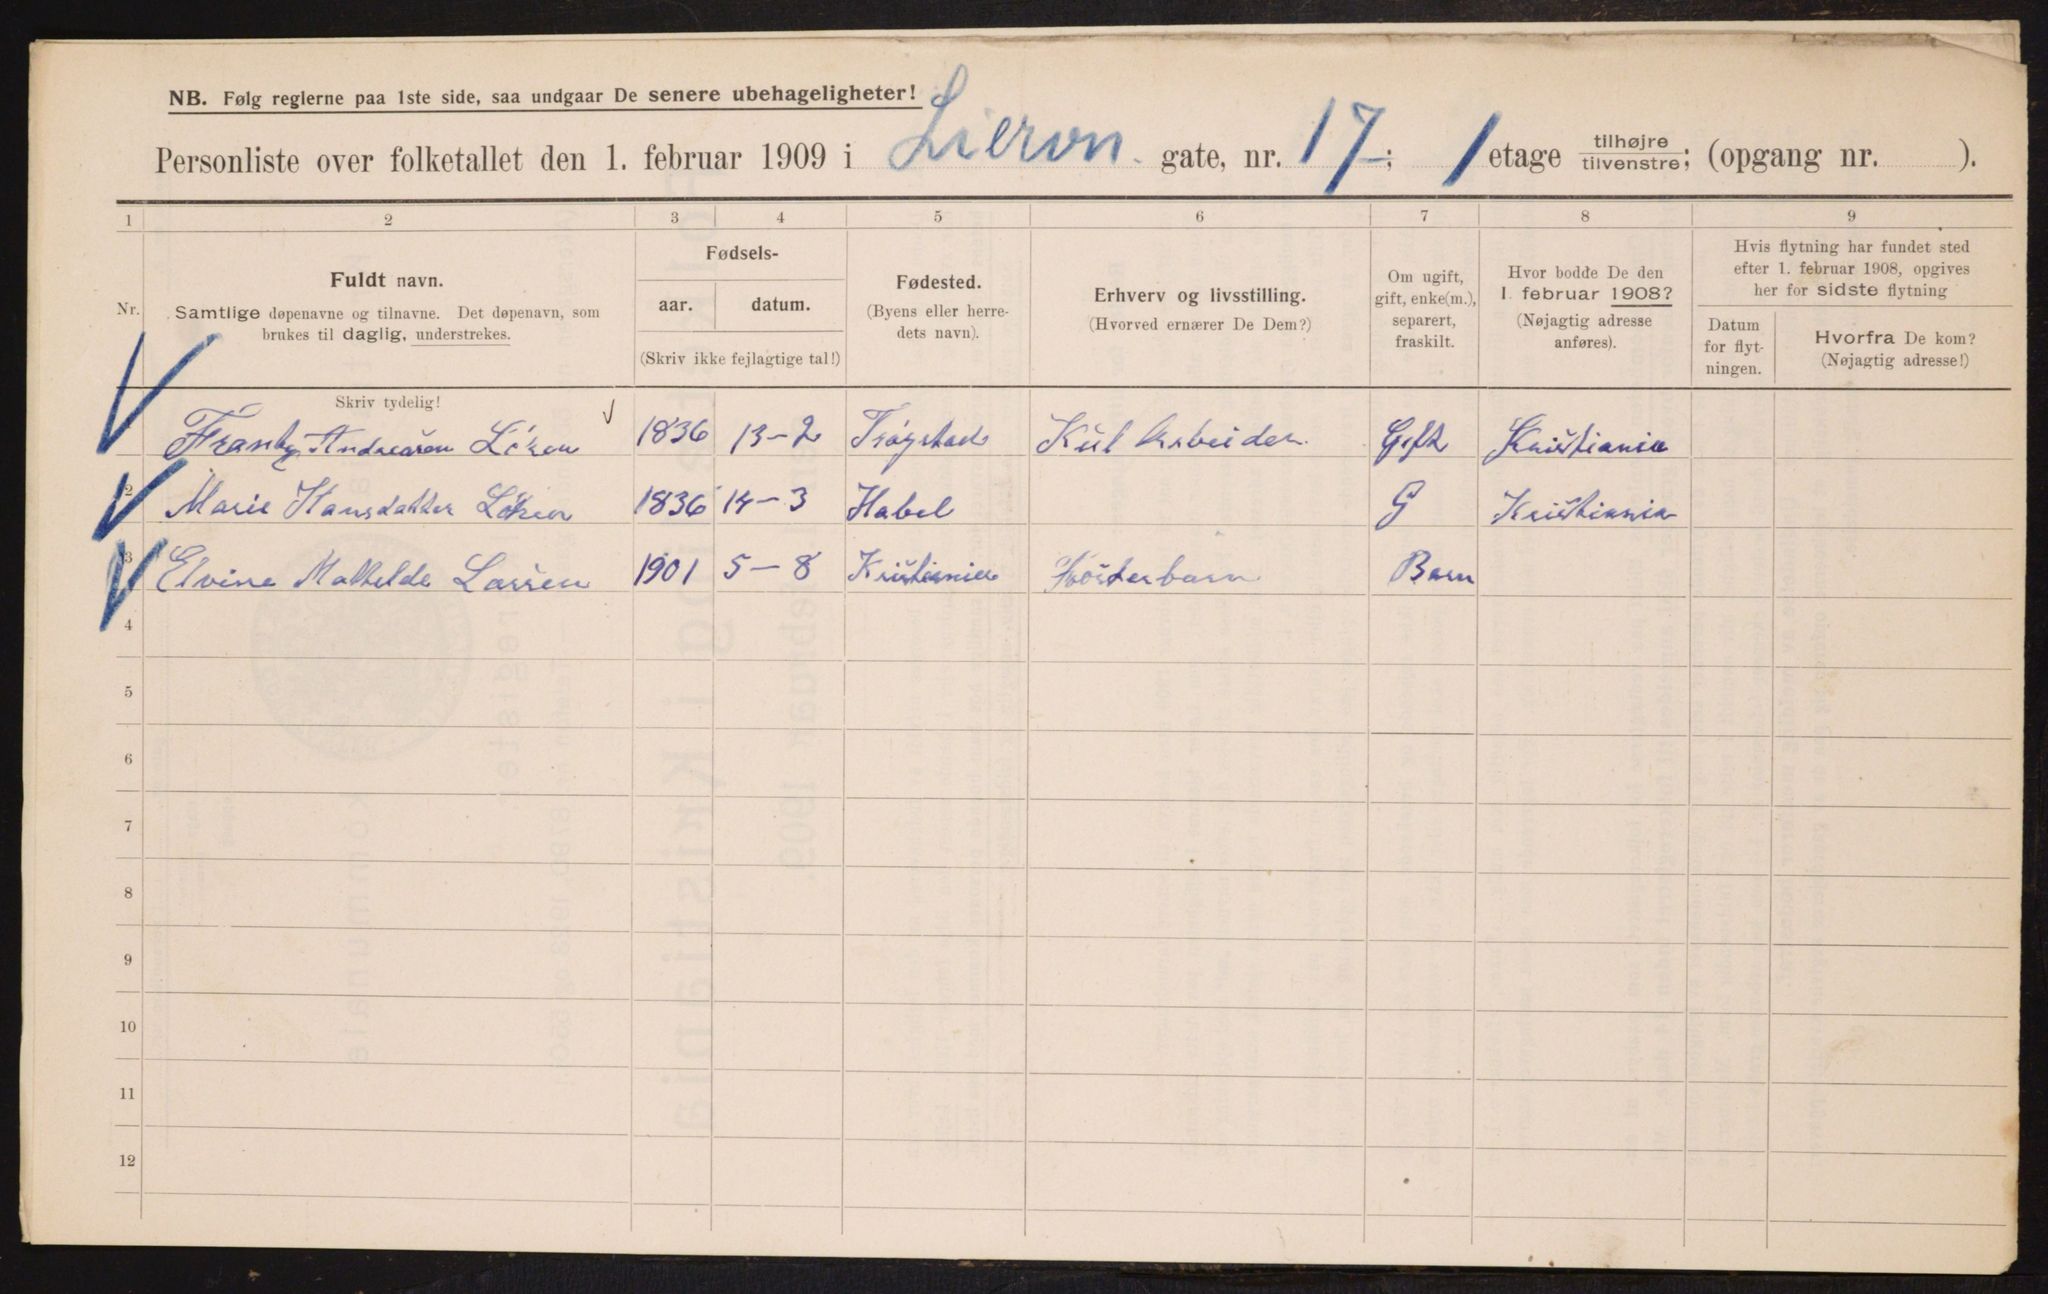 NB. Følg reglerne paa 1ste side, saa undgaar De senere ubehageligheter!
Personliste over folketallet den 1. februar 1909 i Liervn. gate, nr. 17; 1 etage tilhøjre/tilvenstre; (opgang nr. ).
1 2 3 4 5 6 7 8 9
Nr.
Fuldt navn.
Samtlige døpenavne og tilnavne. Det døpenavn, som
brukes til daglig, understrekes.
Fødsels-
aar. datum.
(Skriv ikke fejlagtige tal!)
Fødested.
(Byens eller herre-
dets navn).
Erhverv og livsstilling.
(Hvorved ernærer De Dem?)
Om ugift,
gift, enke(m.),
separert,
fraskilt.
Hvor bodde De den
1. februar 1908?
(Nøjagtig adresse
anføres).
Hvis flytning har fundet sted
efter 1. februar 1908, opgives
her for sidste flytning
Datum
for flyt-
ningen.
Hvorfra De kom?
(Nøjagtig adresse!)
Skriv tydelig!
Andreasen Löken 1836 13-2 Trögstad Kul Arbeider Gift Kristiania
2 Marie Hansdatter Löken 1836 14-3 Habel G Kristiania
3 Elvine Mathelde Larsen 1901 5-8 Kristiania Fösterbarn Barn
4
5
6
7
8
9
10
11
12